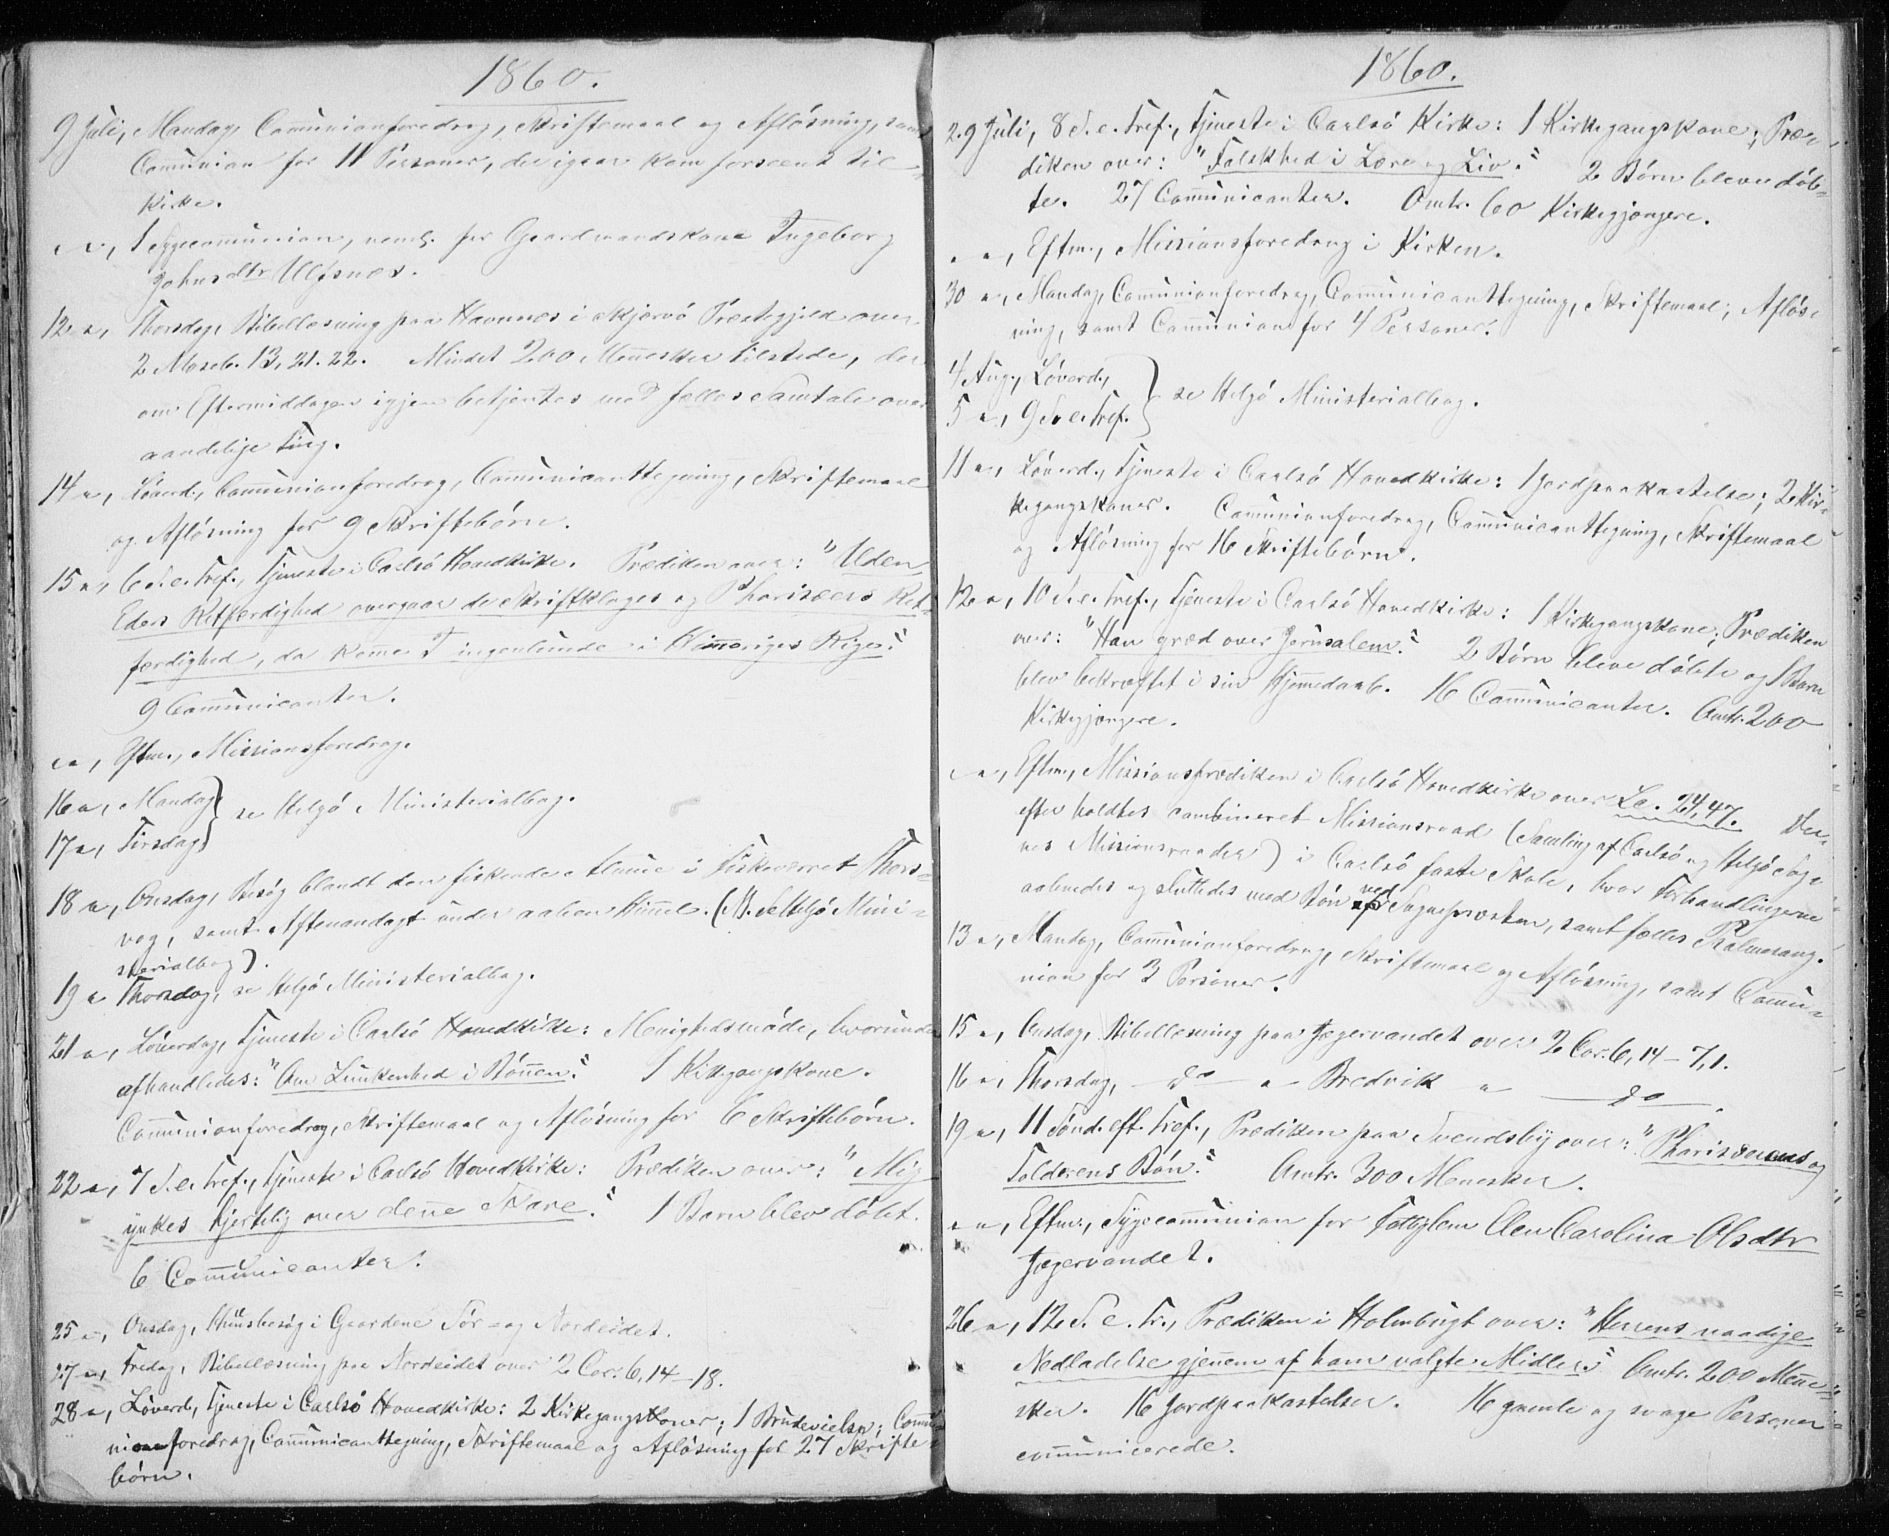 1860.
9 Juli, Mandag, Communionforedrag, Skriftemaal og Afløsning, samt
Communion for 11 Personer, der igaar kom forseent til
Kirke.
" ", 1 Sygecommunion, neml. for Gaardmandskone Ingeborg
Johnsdtr Ulfsnes.
12 ", Thorsdag, Bibellæsning paa Havnnes i Skjervø Præstegjeld over
2 Moseb. 13, 21. 22. Mindst 200 Mennesker tilstede, der
om Eftermiddagen igjen betjentes med fælles Samtale over
aandelige Ting.
14 ", Løverd., Communionforedrag, Communicanttegning, Skriftemaal
og Afløsning for 9 Skriftebørn.
15 ", 6 S. e. Tref., Tjeneste i Carlsø Hovedkirke. Prædiken over: "Uden
Eders Retfærdighed overgaar de Skriftkloges og Pharisæers Ret-
færdighed, da komme I ingenlunde i Himmeriges Rige."
9 Communicanter.
" ", Eftm., Missionsforedrag.
16 ", Mandag } se Helgø Ministerialbog.
17 ", Tirsdag
18 ", Onsdag, Besøg blandt den fiskende Almue i Fiskeværret Thors-
vog, samt Aftenandagt under aaben Himmel. (NB. se Helgø Mini-
sterialbog).
19 " Thorsdag, se Helgø Ministerialbog.
21 ", Løverdag, Tjeneste i Carlsø Hovedkirke: Menighedsmøde, hvorunder
afhandledes: "Om Lunkenhed i Bønnen." 1 Kirkegangskone.
Communionforedrag, Skriftemaal og Afløsning for 6 Skriftebørn.
22 ", 7 S. e. Tref., Tjeneste i Carlsø Hovedkirke: Prædiken over: "Mig
ynkes hjertelig over denne Skare." 1 Barn blev døbt.
6 Communicanter.
25 ", Onsdag, Huusbesøg i Gaardene Sør- og Nordeidet.
27 ", Fredag, Bibellæsning paa Nordeidet over 2 Cor. 6, 14-18.
28 ", Løverd., Tjeneste i Carlsø Hovedkirke: 2 Kirkegangskoner; 1 Brudevielse; Commu-
nionforedrag, Communicanttegning, Skriftemaal og Afløsning for 27 Skrifte-
børn.
1860.
29 Juli, 8 S. e. Tref., Tjeneste i Carlsø Kirke: 1 Kirkegangskone; Præ-
diken over: "Falskhed i Lære og Liv." 2 Børn bleve døb-
te. 27 Communicanter. Omtr. 60 Kirkegjængere.
" ", Eftm., Missionsforedrag i Kirken.
30 ", Mandag, Communionforedrag, Communicanttegning, Skriftemaal, Afløs-
ning, samt Communion for 4 Personer.
4 Aug., Løverd., } se Helgø Ministerialbog.
5 ", 9 S. e. Tref.
11 ", Løverd., Tjeneste i Carlsø Hovedkirke: 1 Jordpaakastelse; 2 Kir-
kegangskoner. Communionforedrag, Communicanttegning, Skriftemaal
og Afløsning for 16 Skriftebørn.
12 ", 10 S. e. Tref., Tjeneste i Carlsø Hovedkirke: 1 Kirkegangskone; Prædiken
over: "Han græd over Jerusalem." 2 Børn bleve døbte og 1 Barn
blev bekræftet i sin Hjemmedaab. 16 Communicanter. Omtr. 200
Kirkegjængere.
" ", Eftm., Missionsprædiken i Carlsø Hovedkirke over Lc. 24, 47. Der-
efter holdtes combineret Missionsraad (Samling af Carlsø og Helgø Sog-
nes Missionsraader) i Carlsø faste Skole, hvor Forhandlingerne
aabnedes og sluttedes med Bøn ved Sognepræsten, samt fælles Psalmesang.
13 ", Mandag, Communionforedrag, Skriftemaal og Afløsning, samt Commu-
nion for 3 Personer.
15 ", Onsdag, Bibellæsning paa Jægervandet over 2 Cor. 6, 14 - 7, 1.
16 ", Thorsdag, — do — " — Bredvik " — do —.
19 ", 11 Sønd. eft. Tref., Prædiken paa Svendsby over: "Pharisæerens og
Tolderens Bøn." Omtr. 300 Mennesker.
" ", Eftm., Sygecommunion for Fattiglem Elen Carolina Olsdtr
Jægervandet.
26 ", 12 S. e. Tr., Prædiken i Holmbugt over: "Herrens naadige
Nedladelse gjennem af ham valgte Midler." Omtr. 200 Menne-
sker. 16 Jordpaakastelser. 16 gamle og svage Personer
communicerede.